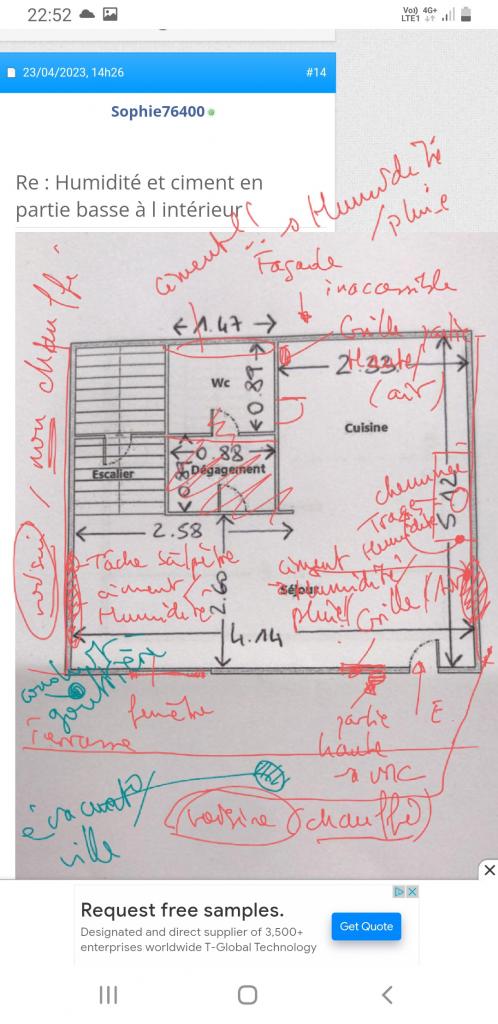 22:52
Vo) 4G+
LTE1
23/04/2023, 14h26
#14
Sophie76400
Re : Humidité et ciment en
partie basse à l intérieur
Humidité
/ pluie
ciment
Façade
inaccessible
voisin / non chauffé
1.47
Grille partie
Haute
2.33
(air)
Wc
0.89
Cuisine
0.88
Escalier
Dégagement
0.8
cheminée
Trace
Humidité
5.12
2.58
Tâche salpêtre
ciment
Humidité
2.60
ciment
Humidité
Séjour
pluie
Grille / Air
4.14
conduit
gouttière
fenêtre
Terrasse
partie
haute
VMC
E
évacuat°
ville
voisine (chauffé)
Request free samples.
Designated and direct supplier of 3,500+
enterprises worldwide T-Global Technology
Get Quote